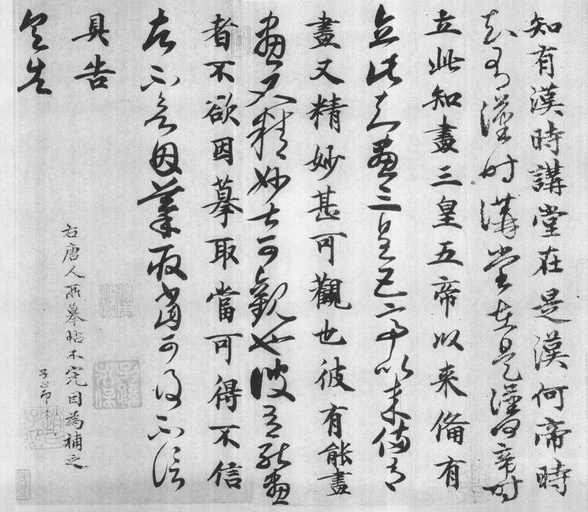 知有漢時講堂在是漢何帝時
知有漢時講堂在是漢何帝時
立此知畫三皇五帝以来俻有
立此知畫三皇五帝以来俻有
畫又精妙甚可觀也彼有能畫
畫又精妙甚可觀也彼有能畫
者不欲因摹取當可得不信
者不欲因摹取當可得不信
具告
具告
右唐人所摹帖不完因為補之
子昂